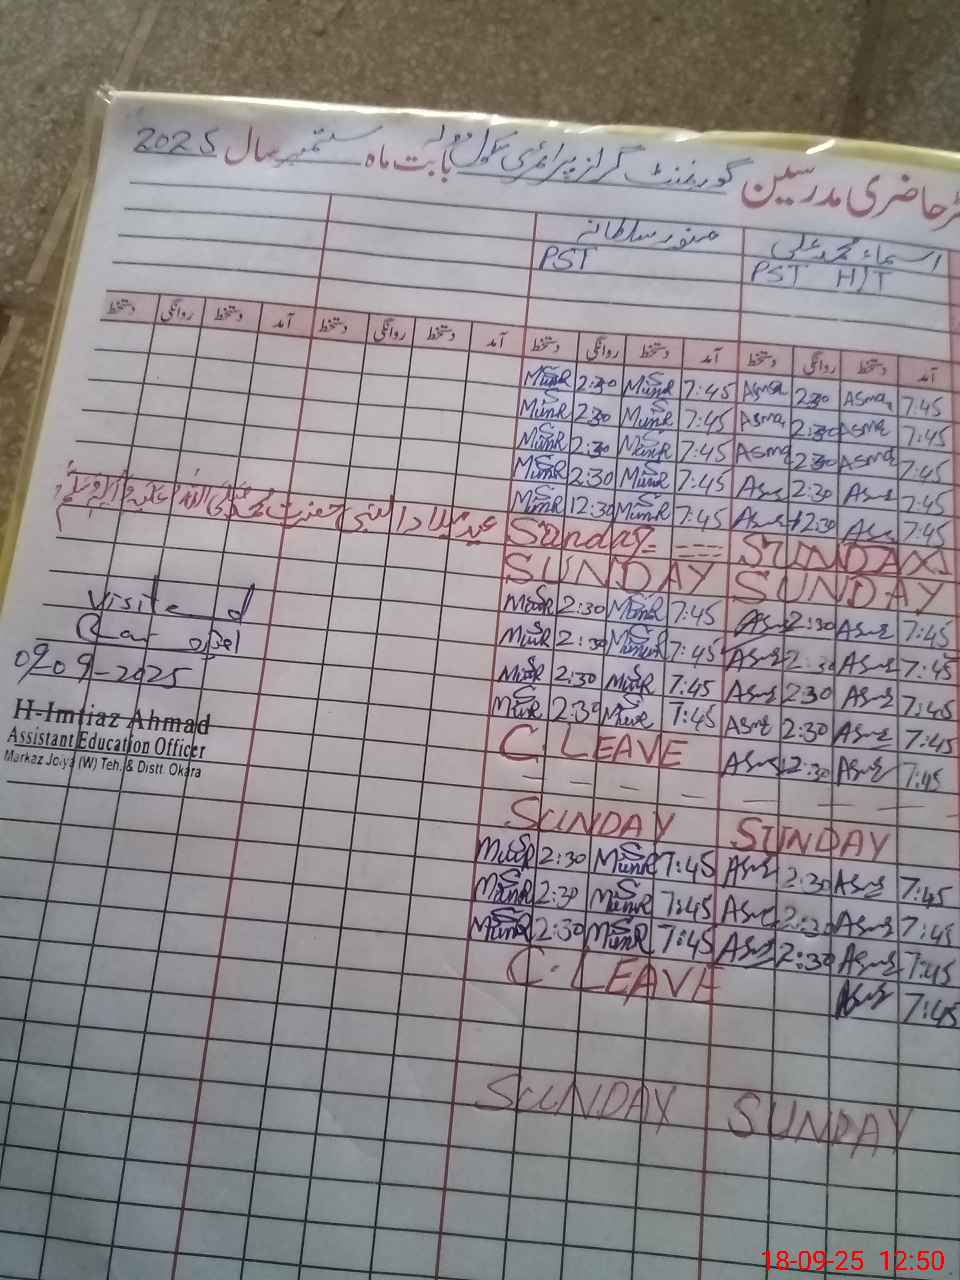 رجسٹر حاضری مدرسین گورنمنٹ گرلز پرائمری سکول بابت ماہ ستمبر سال 2025
اسماء محمد علی منور سلطانہ
PST H/T PST
آمد دستخط روانگی دستخط آمد دستخط روانگی دستخط آمد دستخط روانگی دستخط آمد دستخط روانگی دستخط
MunR 2:30 MunR 7:45 Asma 2:30 Asma 7:45
MunR 2:30 MunR 7:45 Asma 2:30 Asma 7:45
MunR 2:30 MunR 7:45 Asma 2:30 Asma 7:45
MunR 2:30 MunR 7:45 Asma 2:30 Asma 7:45
MunR 12:30 MunR 7:45 Asma 12:30 Asma 7:45
عید میلاد النبی حضرت محمد صلی اللہ علیہ وآلہ وسلم Sunday SUNDAY
SUNDAY SUNDAY
MunR 2:30 MunR 7:45 Asma 2:30 Asma 7:45
Visited MunR 2:30 MunR 7:45 Asma 2:30 Asma 7:45
MunR 2:30 MunR 7:45 Asma 2:30 Asma 7:45
09-09-2025 MunR 2:30 MunR 7:45 Asma 2:30 Asma 7:45
H-Imtiaz Ahmad
Assistant Education Officer
Markaz Joiya (W) Teh. & Distt. Okara
C. LEAVE Asma 2:30 Asma 7:45
SUNDAY SUNDAY
MunR 2:30 MunR 7:45 Asma 2:30 Asma 7:45
MunR 2:30 MunR 7:45 Asma 2:30 Asma 7:45
MunR 2:30 MunR 7:45 Asma 2:30 Asma 7:45
C. LEAVE Asma 7:45
SUNDAY SUNDAY
18-09-25 12:50